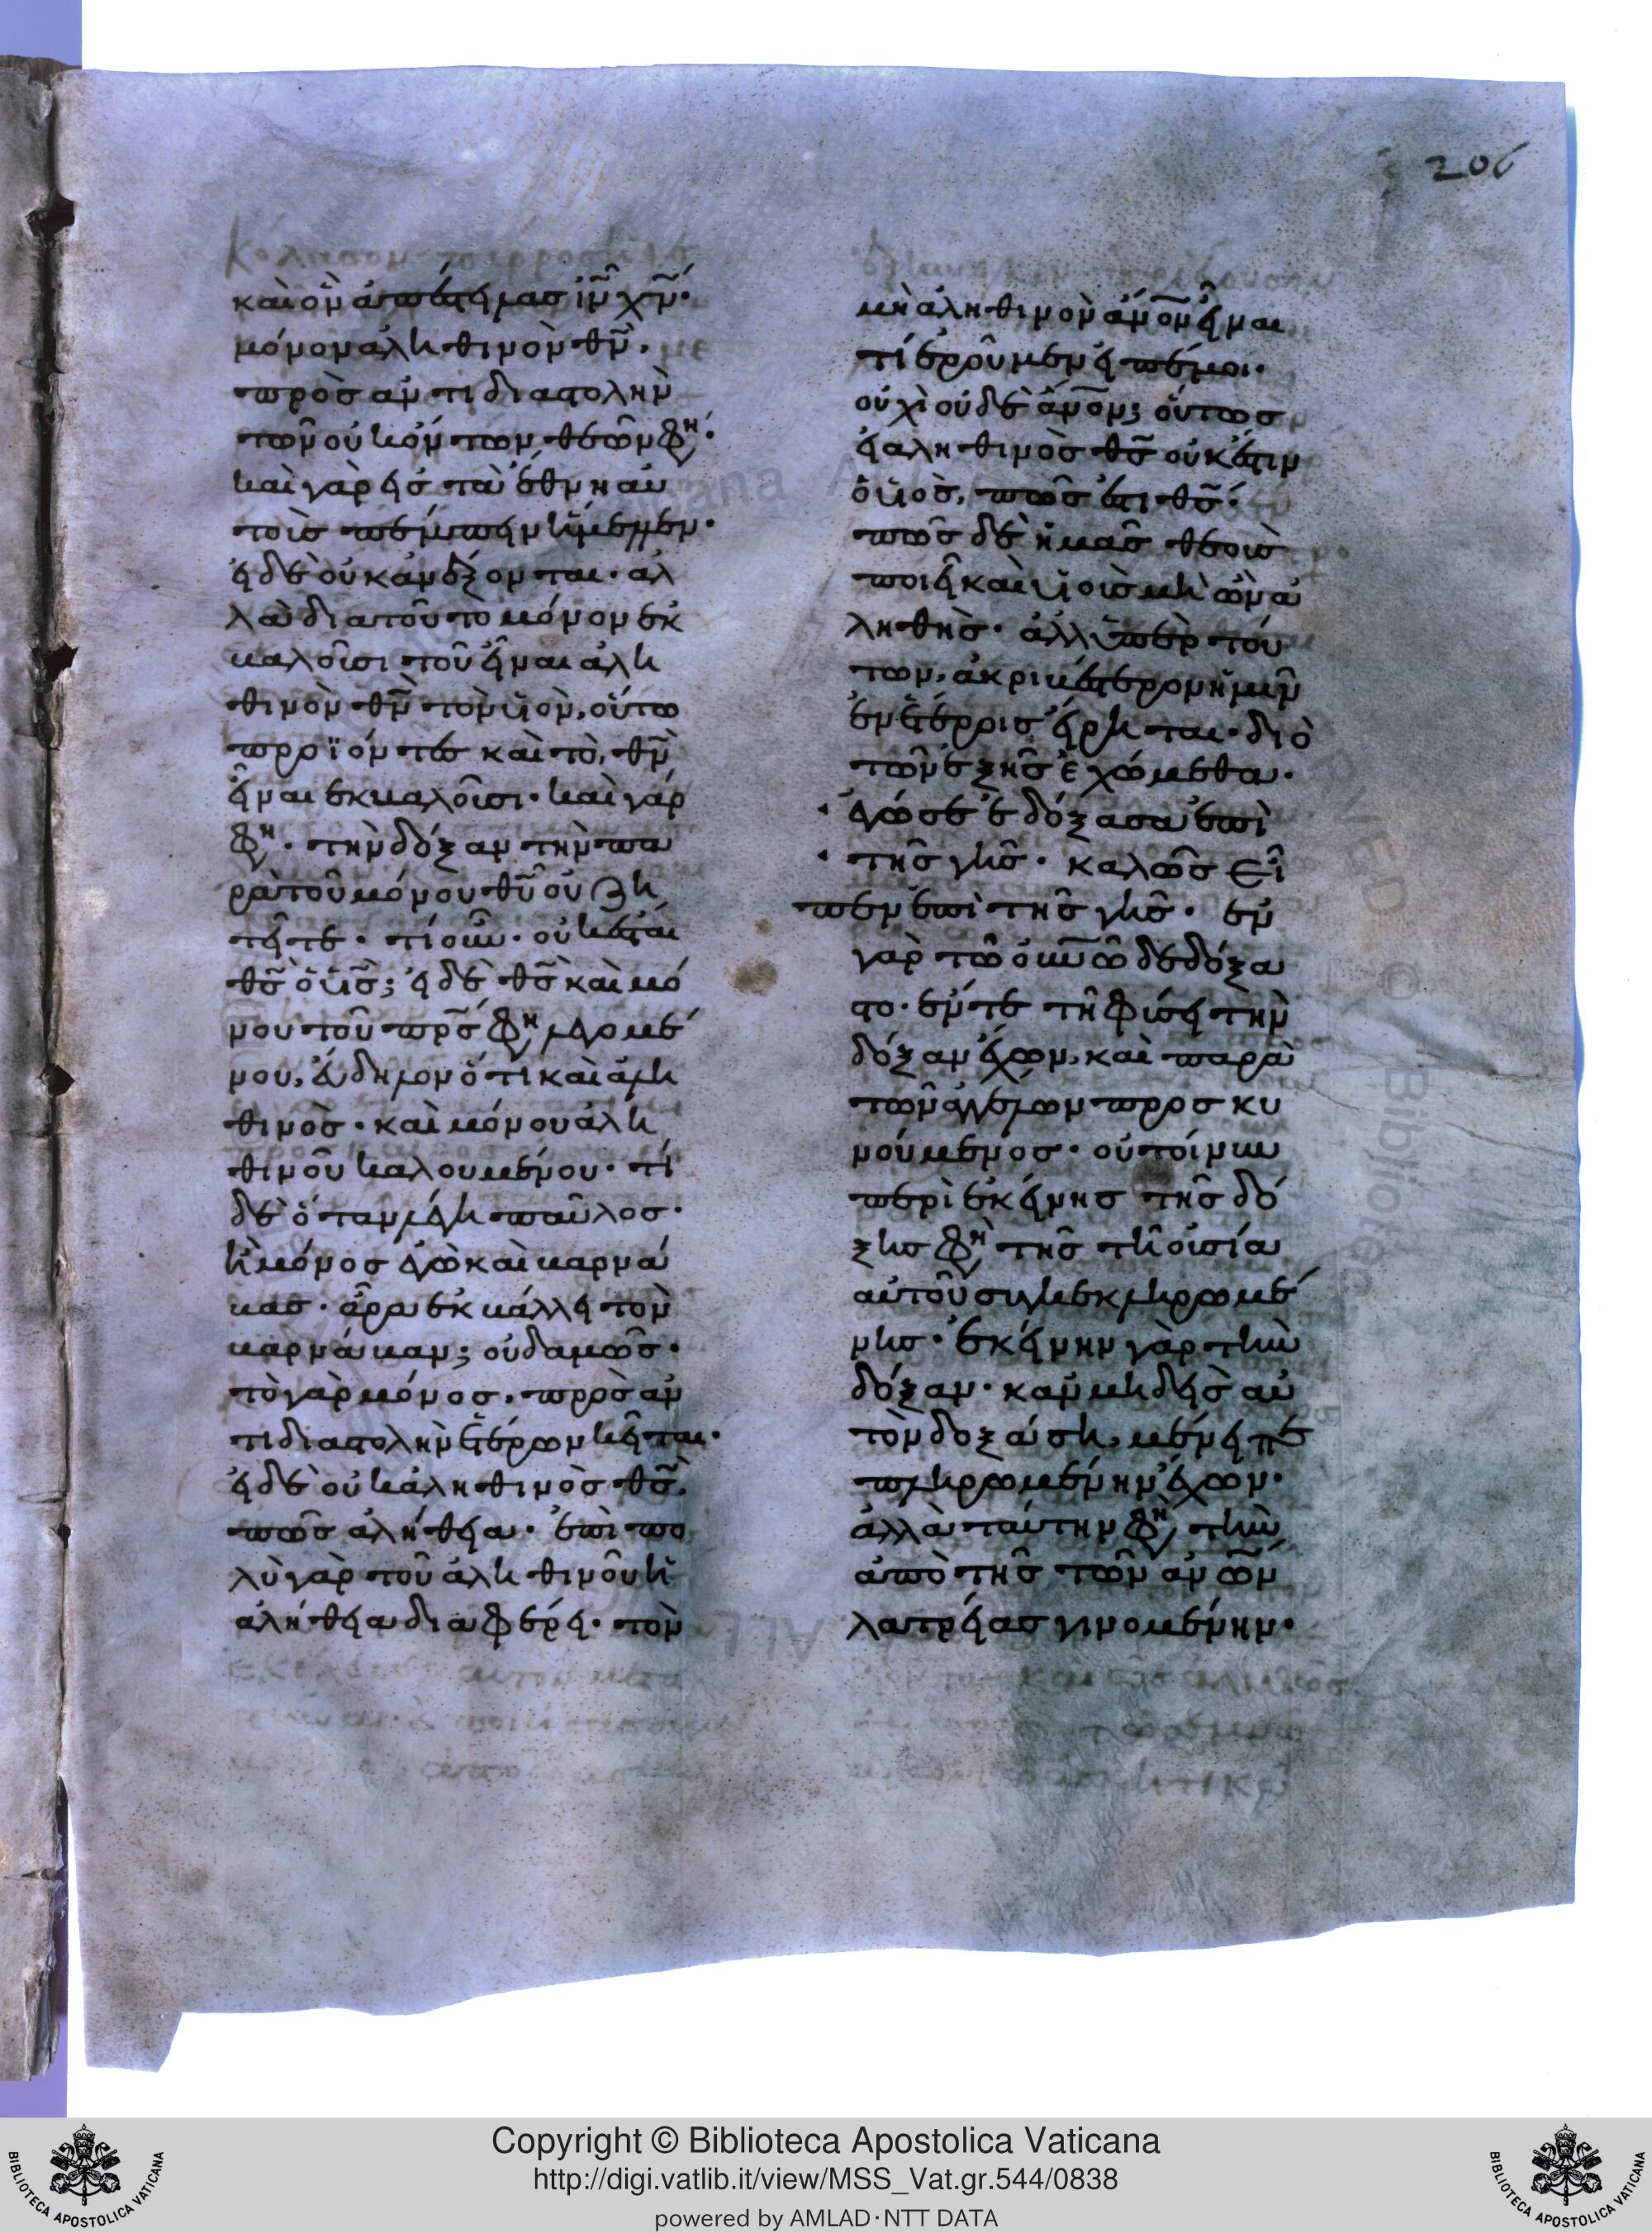 206
καὶ ὃν ἀπέστειλας ἰν̅ χν̅·
μόνον ἀληθινὸν θν̅·
πρὸς ἀντιδιαστολὴν
τῶν οὐκ ὄντων θεῶν φη·
καὶ γὰρ εἰς τὰ ἔθνη αὐ
τοὺς πέμπειν ἤμελλεν·
εἰ δὲ οὐκ ἀνέξονται· ἀλ
λὰ διὰ τοῦτο μόνον ἐκ
βαλοῦσι τοῦ εἶναι ἀλη
θινὸν θν̅ τὸν υἱὸν, οὕτω
προϊόντες καὶ τὸ, θν̅
εἶναι ἐκβαλοῦσι· καὶ γάρ
φη· τὴν δόξαν τὴν πα
ρὰ τοῦ μόνου θυ̅ οὐ ζη
τεῖτε· τί οὖν· οὐκ ἔσται
θς̅ ὁ υἱς̅; εἰ δὲ θς̅ καὶ μό
νου τοῦ πρς̅ φη λεγομέ
νου, εὔδηλον ὅτι καὶ ἀλη
θινὸς· καὶ μόνου ἀλη
θινοῦ καλουμένου· τί
δὲ ὅταν λέγη παῦλος·
ἢ μόνος ἐγὼ καὶ βαρνά
βας· ἆρα ἐκβάλλει τὸν
βαρνάβαν; οὐδαμῶς·
τὸ γὰρ μόνος, πρὸς ἀν
τιδιαστολὴν ἑτέρων κεῖται·
εἰ δὲ οὐκ ἀληθινὸς θς̅,
πῶς ἀλήθεια· ἐπὶ πο
λὺ γὰρ τοῦ ἀληθινοῦ ἡ
ἀλήθεια διαφέρει· τὸν
μὴ ἀληθινὸν ἄν̅ον̅ εἶναι
τί ἐροῦμεν εἰπέ μοι·
οὐχὶ οὐδὲ ἄν̅ον̅; οὕτως
εἰ ἀληθινὸς θς̅ οὐκ ἔστιν
ὁ υἱὸς, πῶς ἐστι θς̅·
πῶς δὲ ἡμᾶς θεοὺς
ποιεῖ καὶ υἱοὺς μὴ ὢν ἀ
ληθὴς· ἀλλ' ὑπὲρ τού
των, ἀκριβέστερον ἡμῖν
ἐν ἑτέροις εἴρηται· διὸ
τῶν ἑξῆς ἐχώμεθα·
ἐγώ σε ἐδόξασα ἐπὶ
τῆς γῆς· καλῶς εἶ
πεν ἐπὶ τῆς γῆς· ἐν
γὰρ τῶ οὐνω̅ δεδόξα
στο· ἔν τε τῆ φύσει τὴν
δόξαν ἔχων, καὶ παρὰ
τῶν ἀγγέλων προσκυ
νούμενος· οὐ τοίνυν
περὶ ἐκείνης τῆς δό
ξης φη τῆς τῆ οὐσία
αὐτοῦ συγκεκληρωμέ
νης· ἐκείνην γὰρ τὴν
δόξαν· κἂν μηδεὶς αὐ
τὸν δοξάση, μένει πε
πληρωμένην ἔχων·
ἀλλὰ ταύτην φη, τὴν
ἀπὸ τῆς τῶν ἀν̅ων̅
λατρείας γινομένην·
Copyright © Biblioteca Apostolica Vaticana
http://digi.vatlib.it/view/MSS_Vat.gr.544/0838
powered by AMLAD·NTT DATA